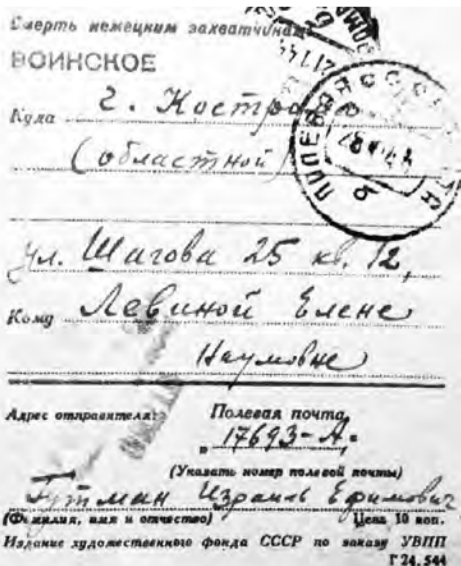 Смерть немецким захватчикам
ВОИНСКОЕ
Куда г. Кострома
(областной)
ул. Шагова 25 кв. 12,
Кому Левиной Елене
Наумовне
Адрес отправителя: Полевая почта
„17693-А“
(Указать номер полевой почты)
Гутман Израиль Ефимович
(Фамилия, имя и отчество) Цена 10 коп.
Издание художественного фонда СССР по заказу УВПП
Г 24.544
ПОЛЕВАЯ